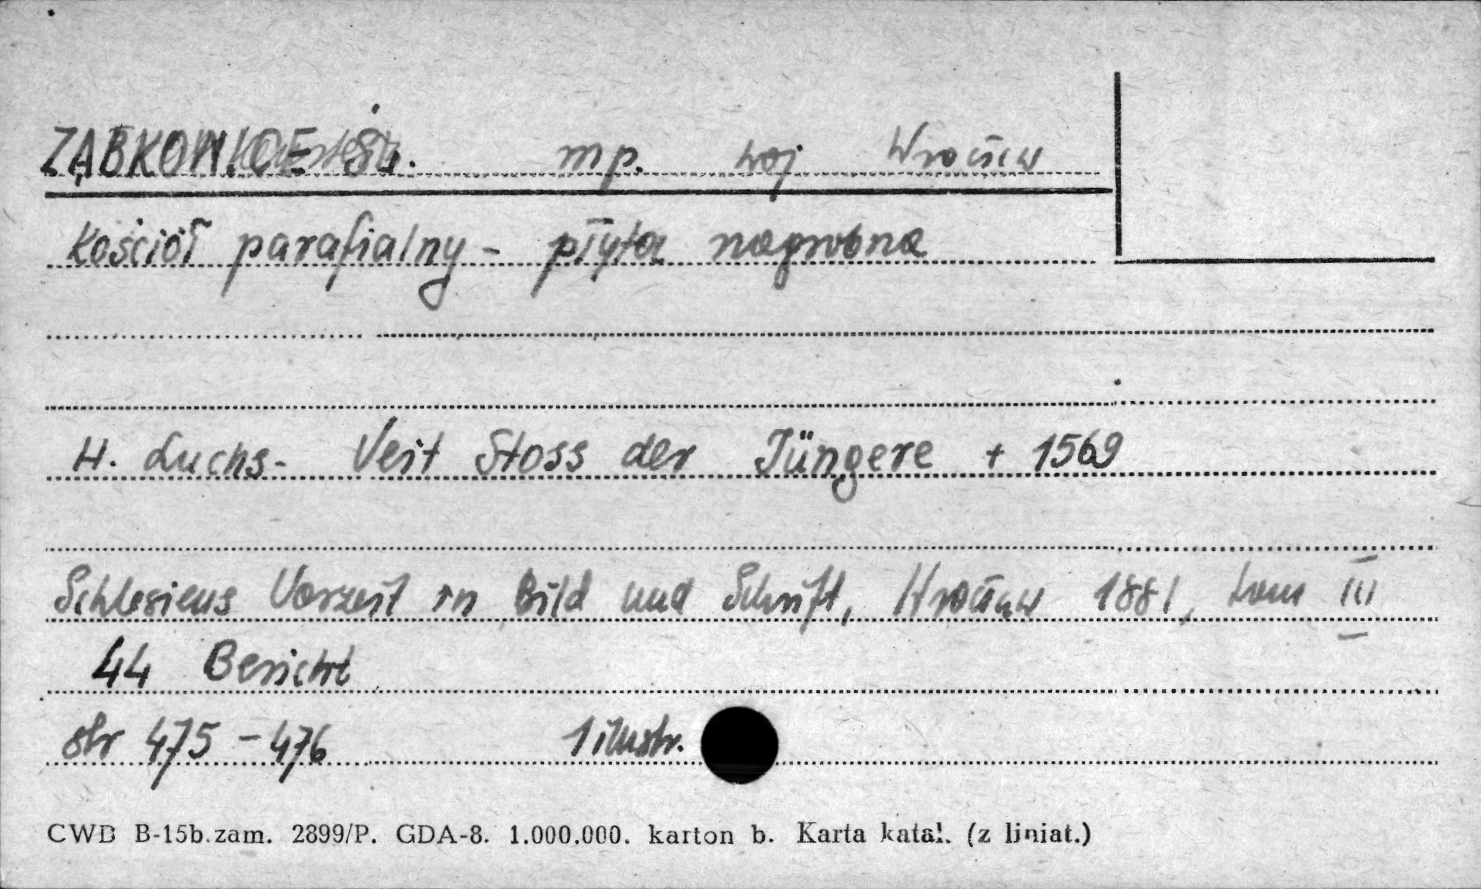 ZĄBKOWICE Śl. mp. woj Wrocław
Kościół parafialny - płyta nagrobna
H. Luchs - Veit Stoss der Jüngere + 1569
Schlesiens Vorzeit in Bild und Schrift, Wrocław 1881, tom III
44 Bericht
str 475-476 1 ilustr.
CWD B-15b.zam. 2899/P. GDA-8. 1.000.000. karton b. Karta katal. (z liniat.)